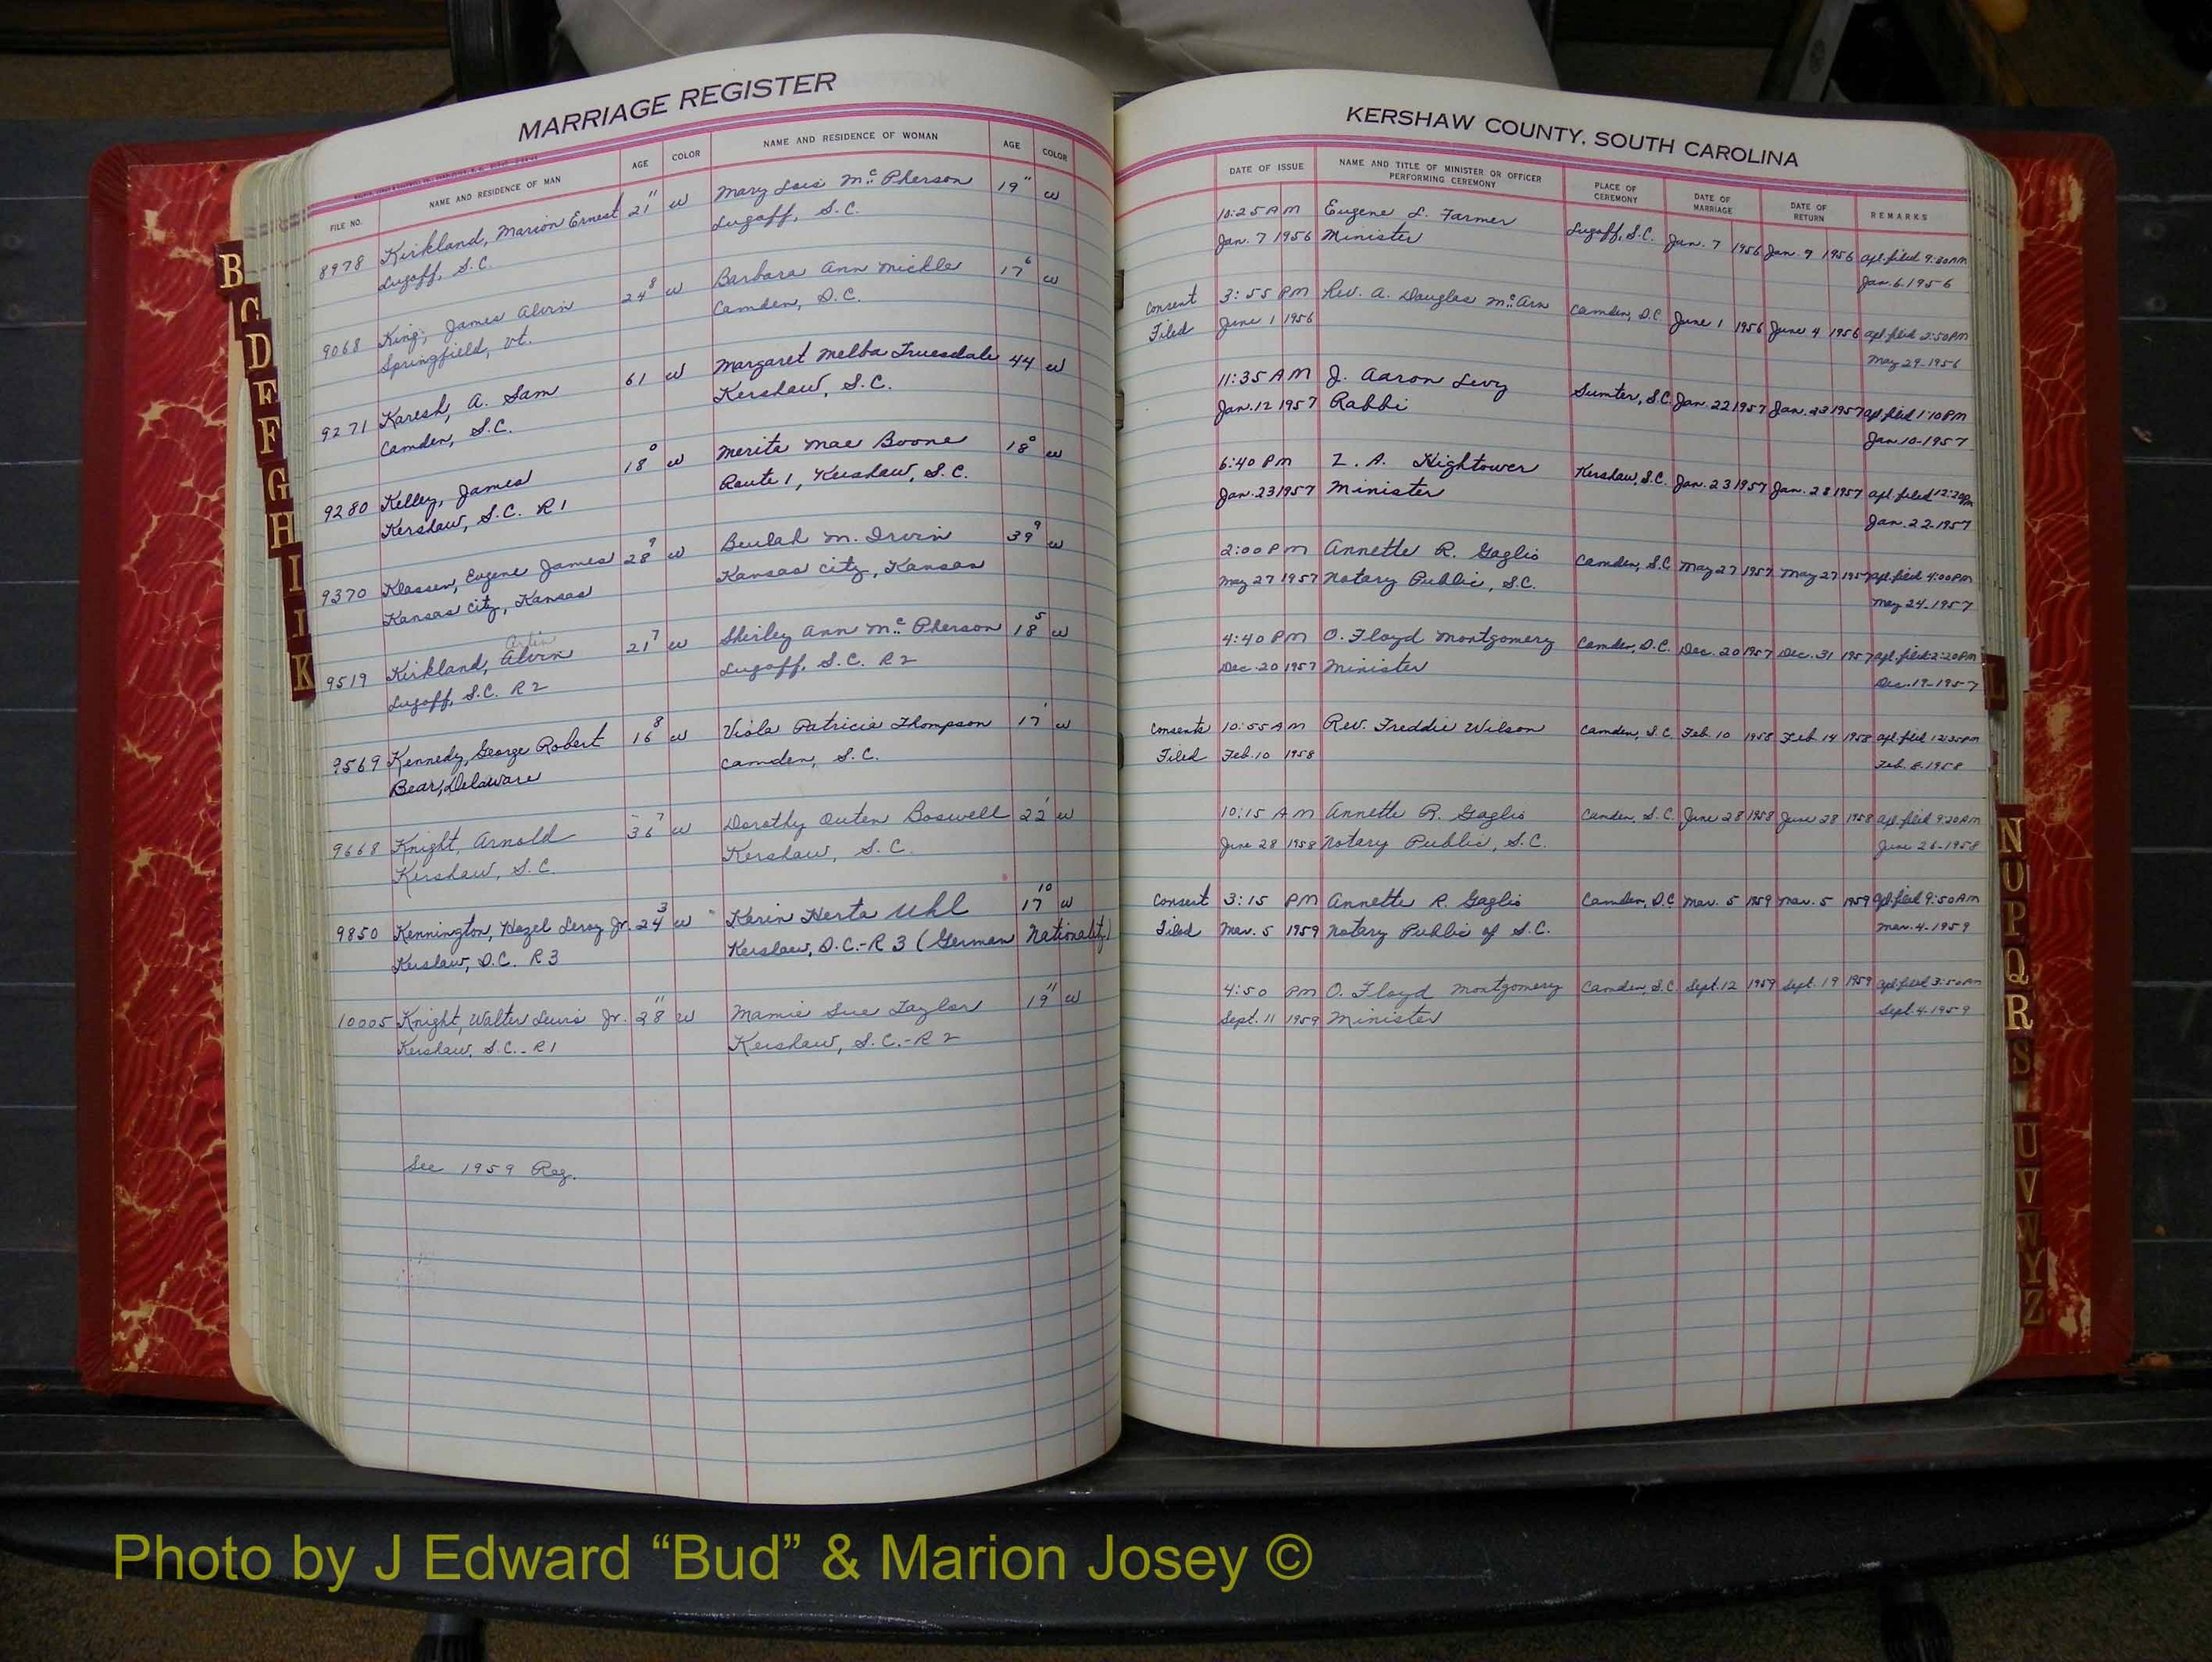 MARRIAGE REGISTER
FILE NO. NAME AND RESIDENCE OF MAN AGE COLOR NAME AND RESIDENCE OF WOMAN AGE COLOR
8978 Kirkland, Marion Ernest 21 11 W Mary Lois Mc Pherson 19 11 W
Lugoff, S.C. Lugoff, S.C.
9068 King, James Alvin 24 8 W Barbara Ann Mickle 17 6 W
Springfield, Vt. Camden, S.C.
9271 Karesh, A. Sam 61 W Margaret Melba Truesdale 44 W
Camden, S.C. Kershaw, S.C.
9280 Kelley, James 18 0 W Merita Mae Boone 18 0 W
Kershaw, S.C. R1 Route 1, Kershaw, S.C.
9370 Klassen, Eugene James 28 9 W Beulah M. Irvin 39 9 W
Kansas City, Kansas Kansas City, Kansas
Artin
9519 Kirkland, Alvin 21 7 W Shirley Ann Mc Pherson 18 5 W
Lugoff, S.C. R2 Lugoff, S.C. R2
9569 Kennedy, George Robert 16 8 W Viola Patricia Thompson 17 1 W
Bear, Delaware Camden, S.C.
9668 Knight, Arnold 36 7 W Dorothy Outen Boswell 22 1 W
Kershaw, S.C. Kershaw, S.C.
9850 Kennington, Hazel Leroy Jr. 24 3 W Karin Herta Uhl 17 10 W
Kershaw, S.C. R3 Kershaw, S.C.-R3 (German Nationality)
10005 Knight, Walter Lewis Jr. 28 11 W Mamie Sue Taylor 19 11 W
Kershaw, S.C.-R1 Kershaw, S.C.-R2
See 1959 Reg.
KERSHAW COUNTY, SOUTH CAROLINA
DATE OF ISSUE NAME AND TITLE OF MINISTER OR OFFICER PERFORMING CEREMONY PLACE OF CEREMONY DATE OF MARRIAGE DATE OF RETURN REMARKS
10:25 AM Eugene L. Farmer Lugoff, S.C. Jan. 7 1956 Jan. 9 1956 apl. filed 9:30AM
Jan. 7 1956 Minister Jan. 6-1956
Consent 3:55 PM Rev. A. Douglas Mc Arn Camden, S.C. June 1 1956 June 4 1956 apl. filed 2:50PM
Filed June 1 1956 May 29-1956
11:35 AM J. Aaron Levy Sumter, S.C. Jan. 22 1957 Jan. 23 1957 apl. filed 1:10PM
Jan. 12 1957 Rabbi Jan. 10-1957
6:40 PM Z. A. Hightower Kershaw, S.C. Jan. 23 1957 Jan. 28 1957 apl. filed 12:20PM
Jan. 23 1957 Minister Jan. 22-1957
2:00 PM Annette R. Gaglio Camden, S.C. May 27 1957 May 27 1957 apl. filed 4:00PM
May 27 1957 Notary Public, S.C. May 24-1957
4:40 PM O. Floyd Montgomery Camden, S.C. Dec. 20 1957 Dec. 31 1957 apl. filed 2:20PM
Dec. 20 1957 Minister Dec. 19-1957
Consents 10:55 AM Rev. Freddie Wilson Camden, S.C. Feb. 10 1958 Feb 14 1958 apl. filed 12:35PM
Filed Feb. 10 1958 Feb. 8-1958
10:15 AM Annette R. Gaglio Camden, S.C. June 28 1958 June 28 1958 apl. filed 9:20AM
June 28 1958 Notary Public, S.C. June 26-1958
Consent 3:15 PM Annette R. Gaglio Camden, S.C. Mar. 5 1959 Mar. 5 1959 apl. filed 9:50AM
Filed Mar. 5 1959 Notary Public of S.C. Mar. 4-1959
4:50 PM O. Floyd Montgomery Camden, S.C. Sept. 12 1959 Sept. 19 1959 apl. filed 3:50PM
Sept. 11 1959 Minister Sept. 4-1959
B
C
D
E
F
G
H
I
J
K
L
N
O
P
Q
R
S
U
V
W
Y
Z
Photo by J Edward “Bud” & Marion Josey ©